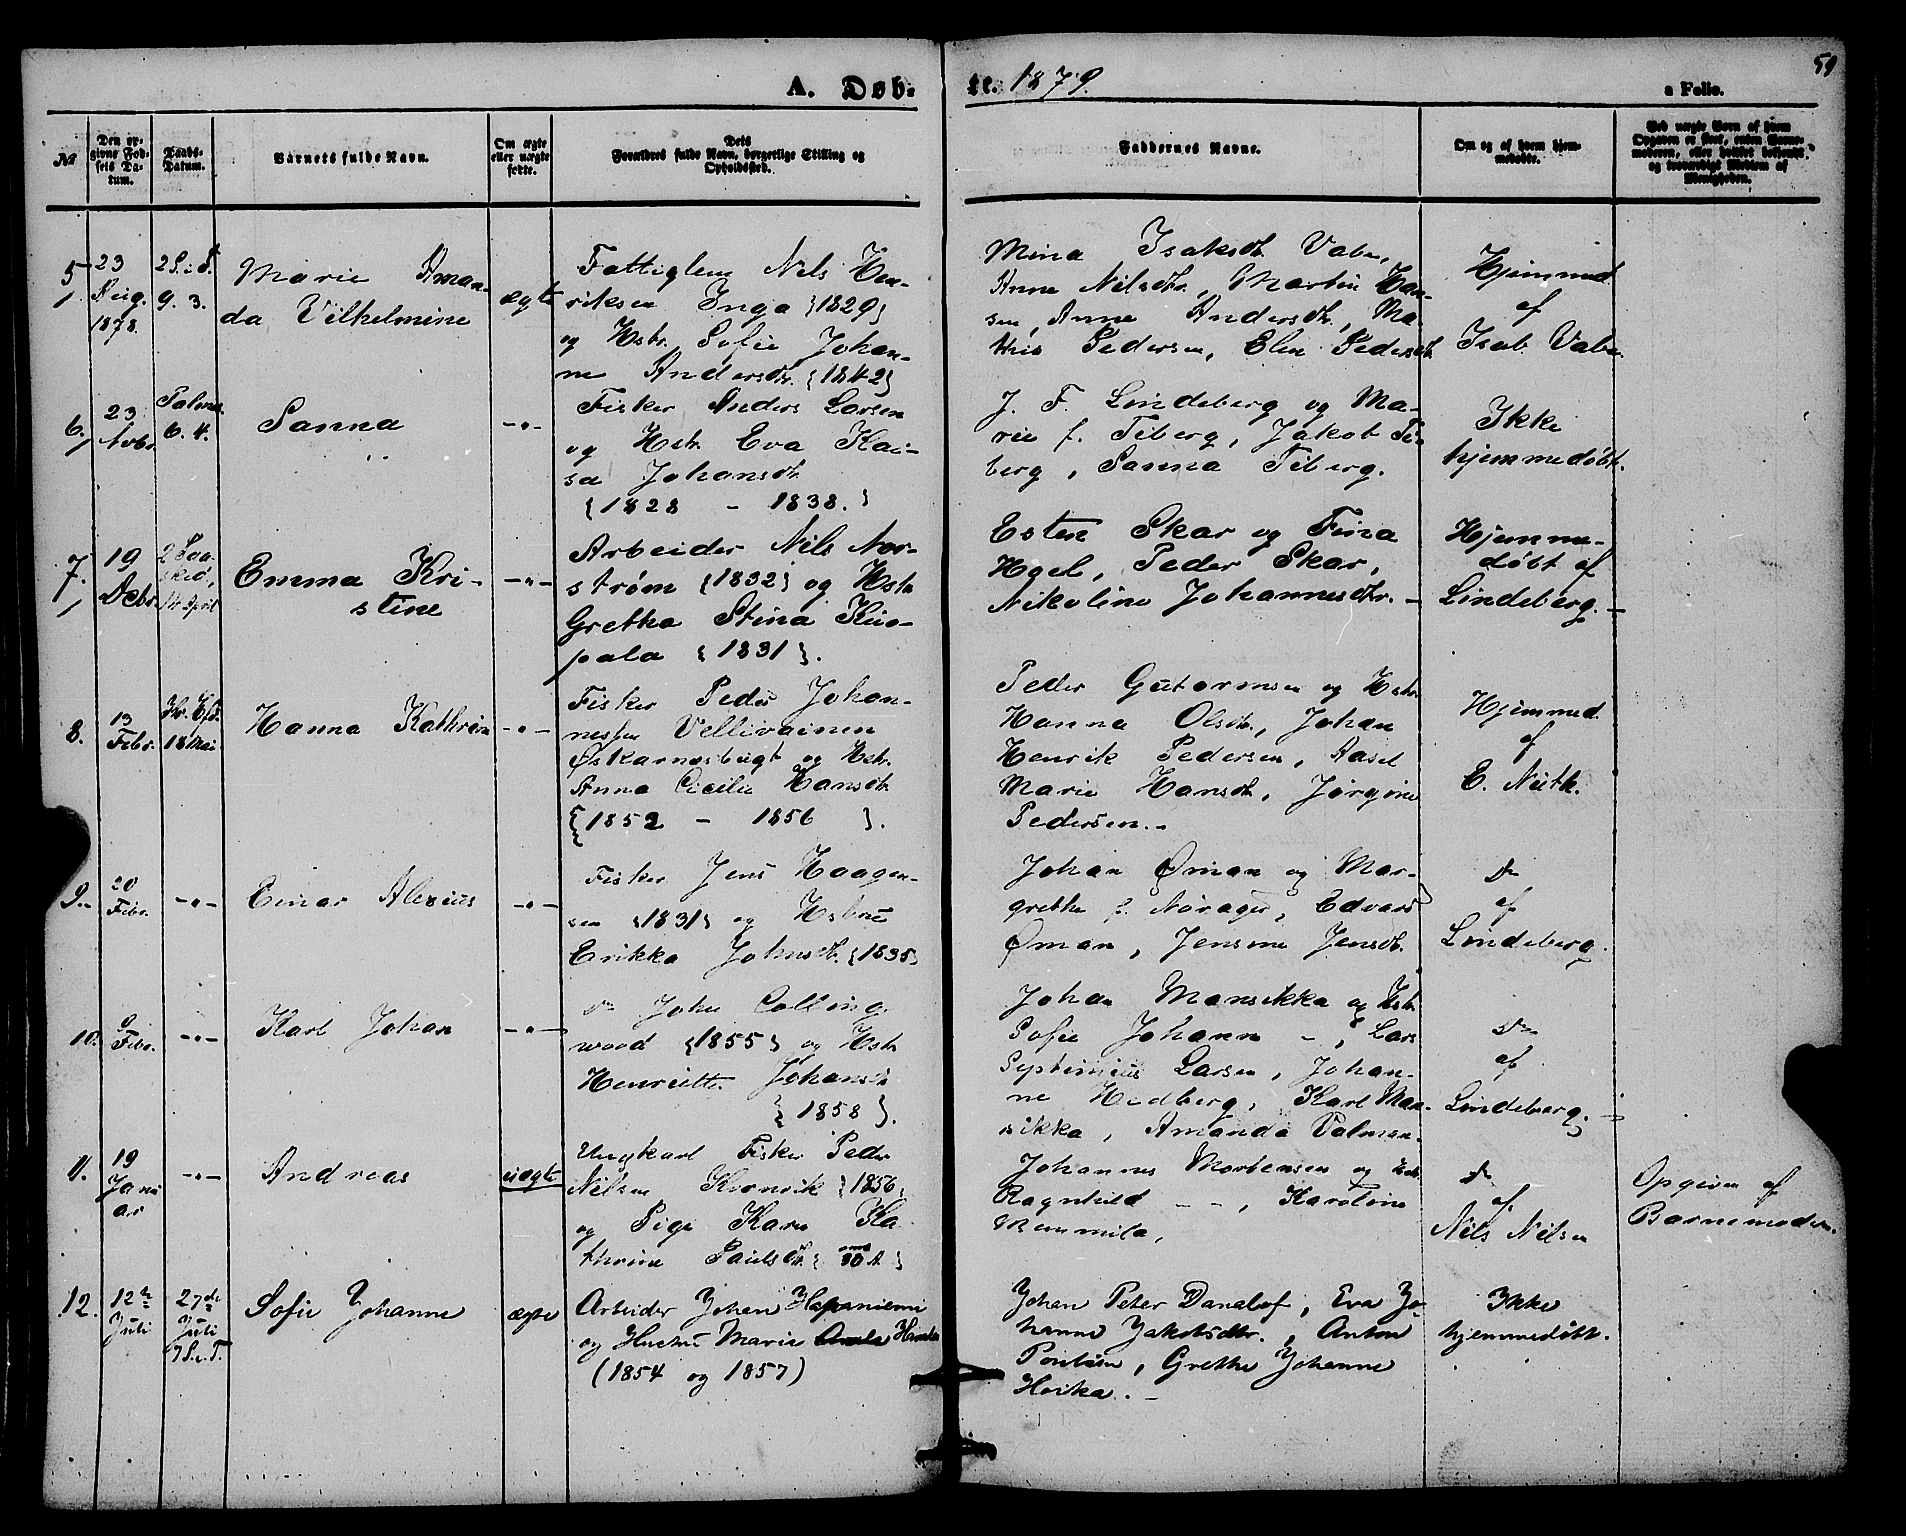 A. Døb-
te. 1879.
a Folio.
59
No
Den op-
givne Fød-
sels Da-
tum.
Daabs-
Datum.
Barnets fulde Navn.
Om ægte
eller uægte
fødte.
Dets
Forældres fulde Navn, borgerlige Stilling og
Opholdssted.
Faddernes Navne.
Om og af hvem hjem-
medøbte.
Ved uægte Børn af hvem
Opgaven er skeet, enten Barne-
moderen, eller hvilket bekjendt
og troværdigt Medlem af
Menigheden.
5
23
Aug.
1878.
2 S. i F.
9. 3.
Marie Aman-
da Vilhelmine
ægte
Fattiglem Nils Hen-
riksen Inga {1829}
og Hstr. Sofie Johan-
ne Andersdtr. {1842}
Mina Isaksdtr. Vabe,
Anne Nilsdtr., Martin Han-
sen, Anne Andersdtr., Ma-
this Pedersen, Elen Pedersdtr.
Hjemmed.
af
Isab. Vabe.
6.
23
Novbr.
Palmes.
6. 4.
Sanna
-"-
Fisker Anders Larsen
og Hstr. Eva Kai-
sa Johansdtr.
{1828 - 1838.}
J. F. Lindeberg og Ma-
rie f. Tiberg, Jakob Ti-
berg, Sanna Tiberg.
Ikke
hjemmedøbt.
7.
19
Decbr.
2 Paa-
sked.,
14 April
Emma Kri-
stine
-"-
Arbeider Nils Nor-
strøm {1832} og Hstr.
Gretha Stina Kuo-
pala {1831}.
Esten Skar og Fina
Hgel, Peder Skar,
Nikoline Johannesdtr. -
Hjemme-
døbt af
Lindeberg. -
8.
13
Febr.
Kr. Hfd.
18 Mai
Hanna Kathrine
-"-
Fisker Peder Johan-
nessen Vellivainen
Øskarnæsbugt og Hstr.
Anna Cicilie Hansdtr.
{1852 - 1856}.
Peder Gutormsen og Hstr.
Hanna Olsdtr., Johan
Henrik Pedersen, Aasel
Marie Hansdtr., Jørgine
Pedersen. -
Hjemmed.
af
E. Nuth.
9.
20
Febr.
-"-
Einar Alexius
-"-
Fisker Jens Haagen-
sen {1831} og Hstru
Erikka Johnsdtr. {1835}
Johan Øman og Mar-
grethe f. Norager, Edvard
Øman, Jensine Jensdtr.
Do
af
Lindeberg.
10.
9
Febr.
-"-
Karl Johan
-"-
do John Colling-
wood {1855} og Hstr.
Henriette Johansdtr.
{1858}.
Johan Mansikka og Hstr.
Sofie Johanne -, Lars
Septimius Larsen, Johan-
ne Hedberg, Karl Man-
sikka, Amanda Valman.
Do
af
Lindeberg. -
11.
19
Janu
ar
-"-
Andreas
uægte
Ungkarl Fisker Peder
Nilsen Kronvik {1856}
og Pige Karen Ka-
thrine Paulsdtr.
Johannes Mortensen og Hstr.
Ragnhild - -, Karoline
Mummila,
Do
af
Nils Nilsen
Opgiven af
Barnemoderen.
12.
12te
Juli
27de
Juli
7 S. e. T.
Sofie Johanne
ægte
Arbeider Johan Hapaniemi
og Hustru Marie
(1854 og 1857)
Johan Peter Danalof, Eva Jo-
hanne Jakobsdtr., Anton
Pontisen, Grethe Johanne
Hoika. -
Ikke
hjemmedøbt.